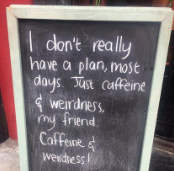 I don't really
have a plan, most
days. Just caffeine
& weirdness,
my friend.
Caffeine &
weirdness!